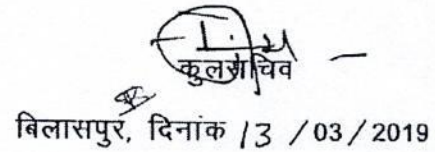 कुलसचिव
बिलासपुर, दिनांक 13 / 03 / 2019